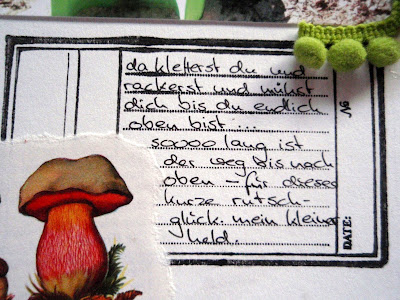 da kletterst du und
rackerst und mühst
dich bis du endlich
oben bist ...
sooooo lang ist
der weg bis nach
oben - für diese
kurze rutsch-
glück. mein kleiner
held.
DATE: